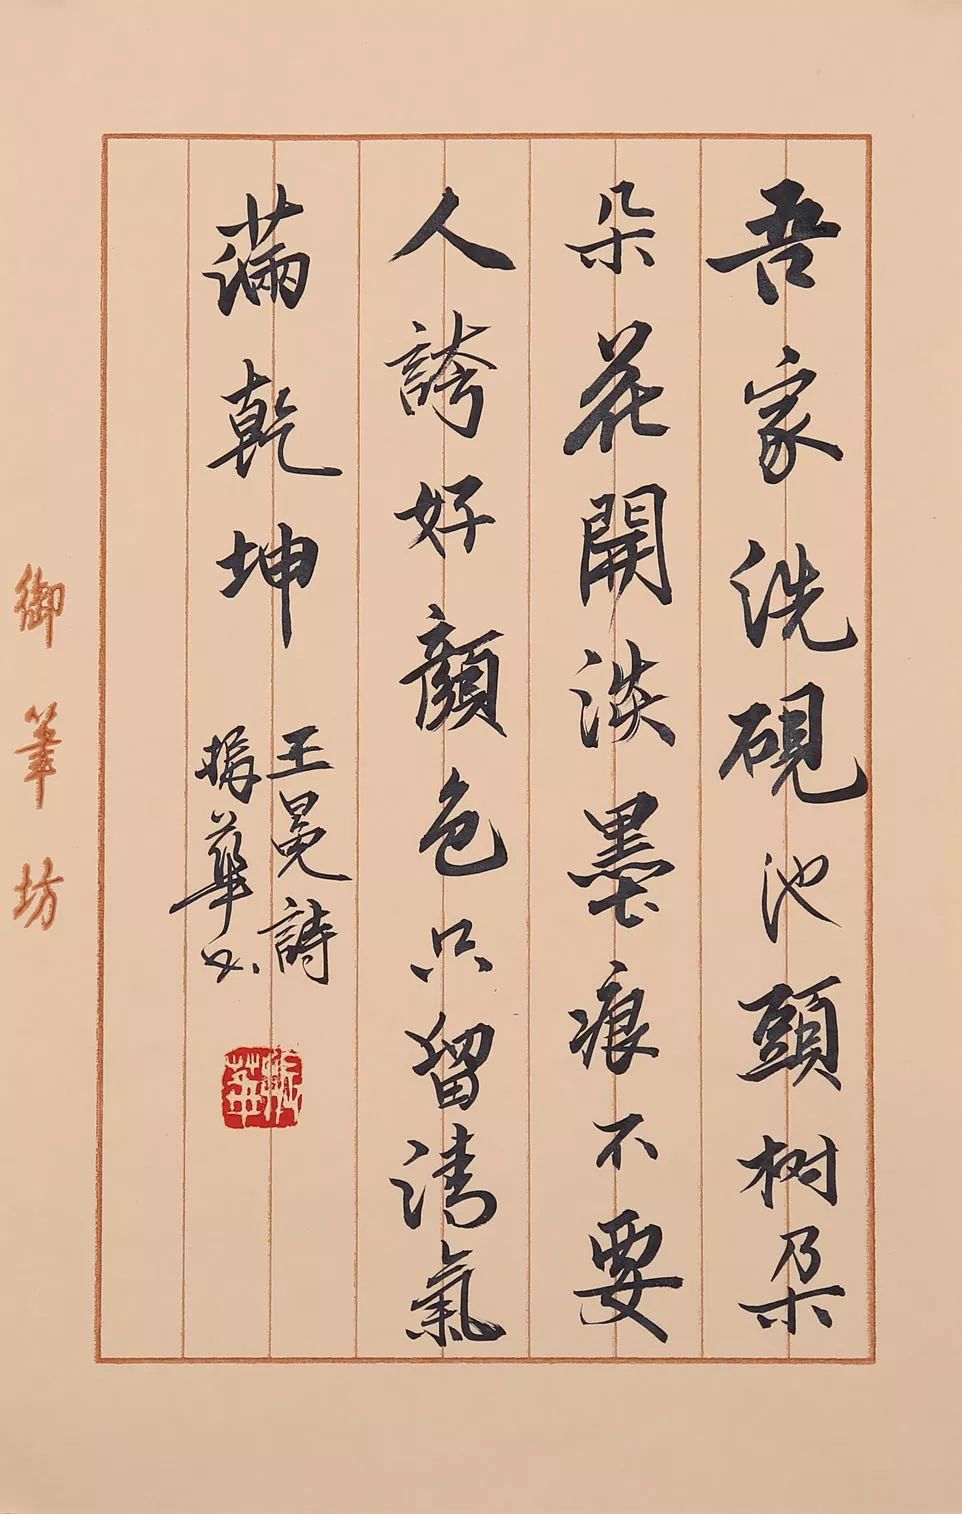 吾家洗硯池頭树朶
朵花開淡墨痕不要
人誇好顏色只留清氣
满乾坤
王冕詩
振華书
御筆坊